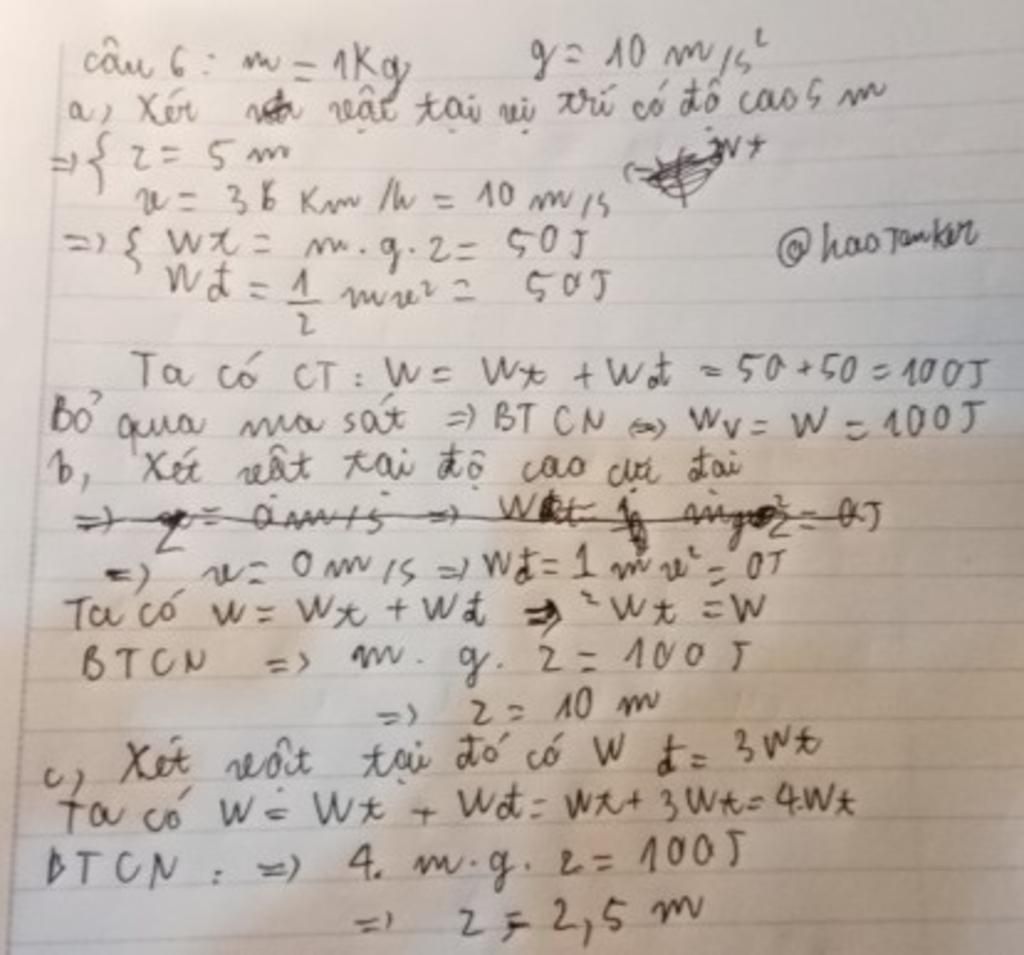 câu 6 : m = 1Kg g = 10 m/s²
a, Xét vật tại vị trí có độ cao 5 m
=> { z = 5 m
v = 36 Km/h = 10 m/s
=> { Wt = m.g.z = 50J @haoTanker
Wđ = 1/2 mv² = 50J
Ta có CT : W = Wt + Wđ = 50 + 50 = 100J
Bỏ qua ma sát => BTCN <=> Wv = W = 100J
b, Xét vật tại độ cao cực đại
=> v = 0 m/s => Wđ = 1/2 mv² = 0J
Ta có W = Wt + Wđ => Wt = W
BTCN => m. g. z = 100J
=> z = 10 m
c, Xét vật tại đó có Wđ = 3Wt
Ta có W = Wt + Wđ = Wt + 3Wt = 4Wt
BTCN : => 4. m.g. z = 100J
=> z = 2,5 m